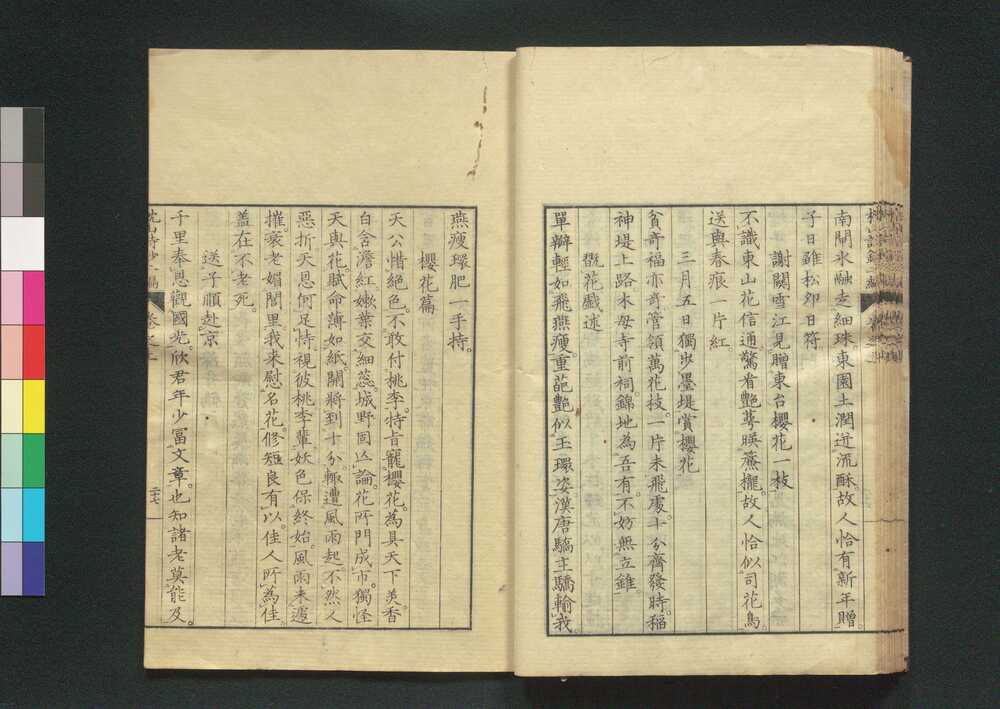 南閘氷融走細珠東園土潤迸流酥故人恰有新年贈。
子日雖松卯日符
謝關雪江見贈東台櫻花一枝
不識東山花信通驚看艶萼暎簾櫳。故人恰似司花鳥
送與春痕一片紅
三月五日獨步墨堤賞櫻花
貧奇福亦奇管領萬花枝。一片未飛處十分齊發時。稲
神堤上路木母寺前祠。錦地為吾有。不妨無立錐。
翫花戯述
單瓣輕如飛燕瘦。重葩艶似玉環姿漢唐驕主驕輸我。
燕瘦環肥一手持。
櫻花篇
天公惜絕色。不敢付桃李。特旨寵櫻花。為具天下美。香
白含澹紅嫩葉交細蕊。城野固亡論。花所門成市。獨怪
天與花。賦命薄如紙。開將到十分。輙遭風雨起不然人
惡折。天恩何足恃視彼桃李輩妖色保終始。風雨未遽
摧。衰老媚閭里我来慰名花。修短良有以。佳人所為佳。
蓋在不老死。
送子順赴京
千里奉恩觀國光。欣君年少富文章。也知諸老莫能及。
卷之二
二十七